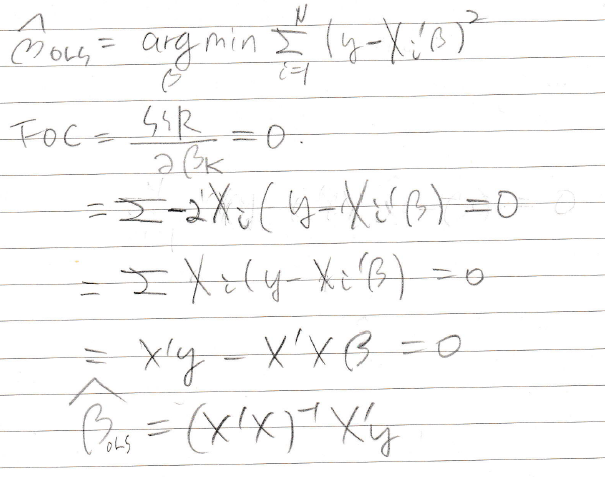 β̂OLS = arg min Σ (y-Xi'β)²
β i=1 N
FOC = SSR / ∂βK = 0.
= Σ -2Xi (y-Xi'β) = 0
= Σ Xi(y-Xi'β) = 0
= X'y - X'Xβ = 0
β̂OLS = (X'X)⁻¹ X'y